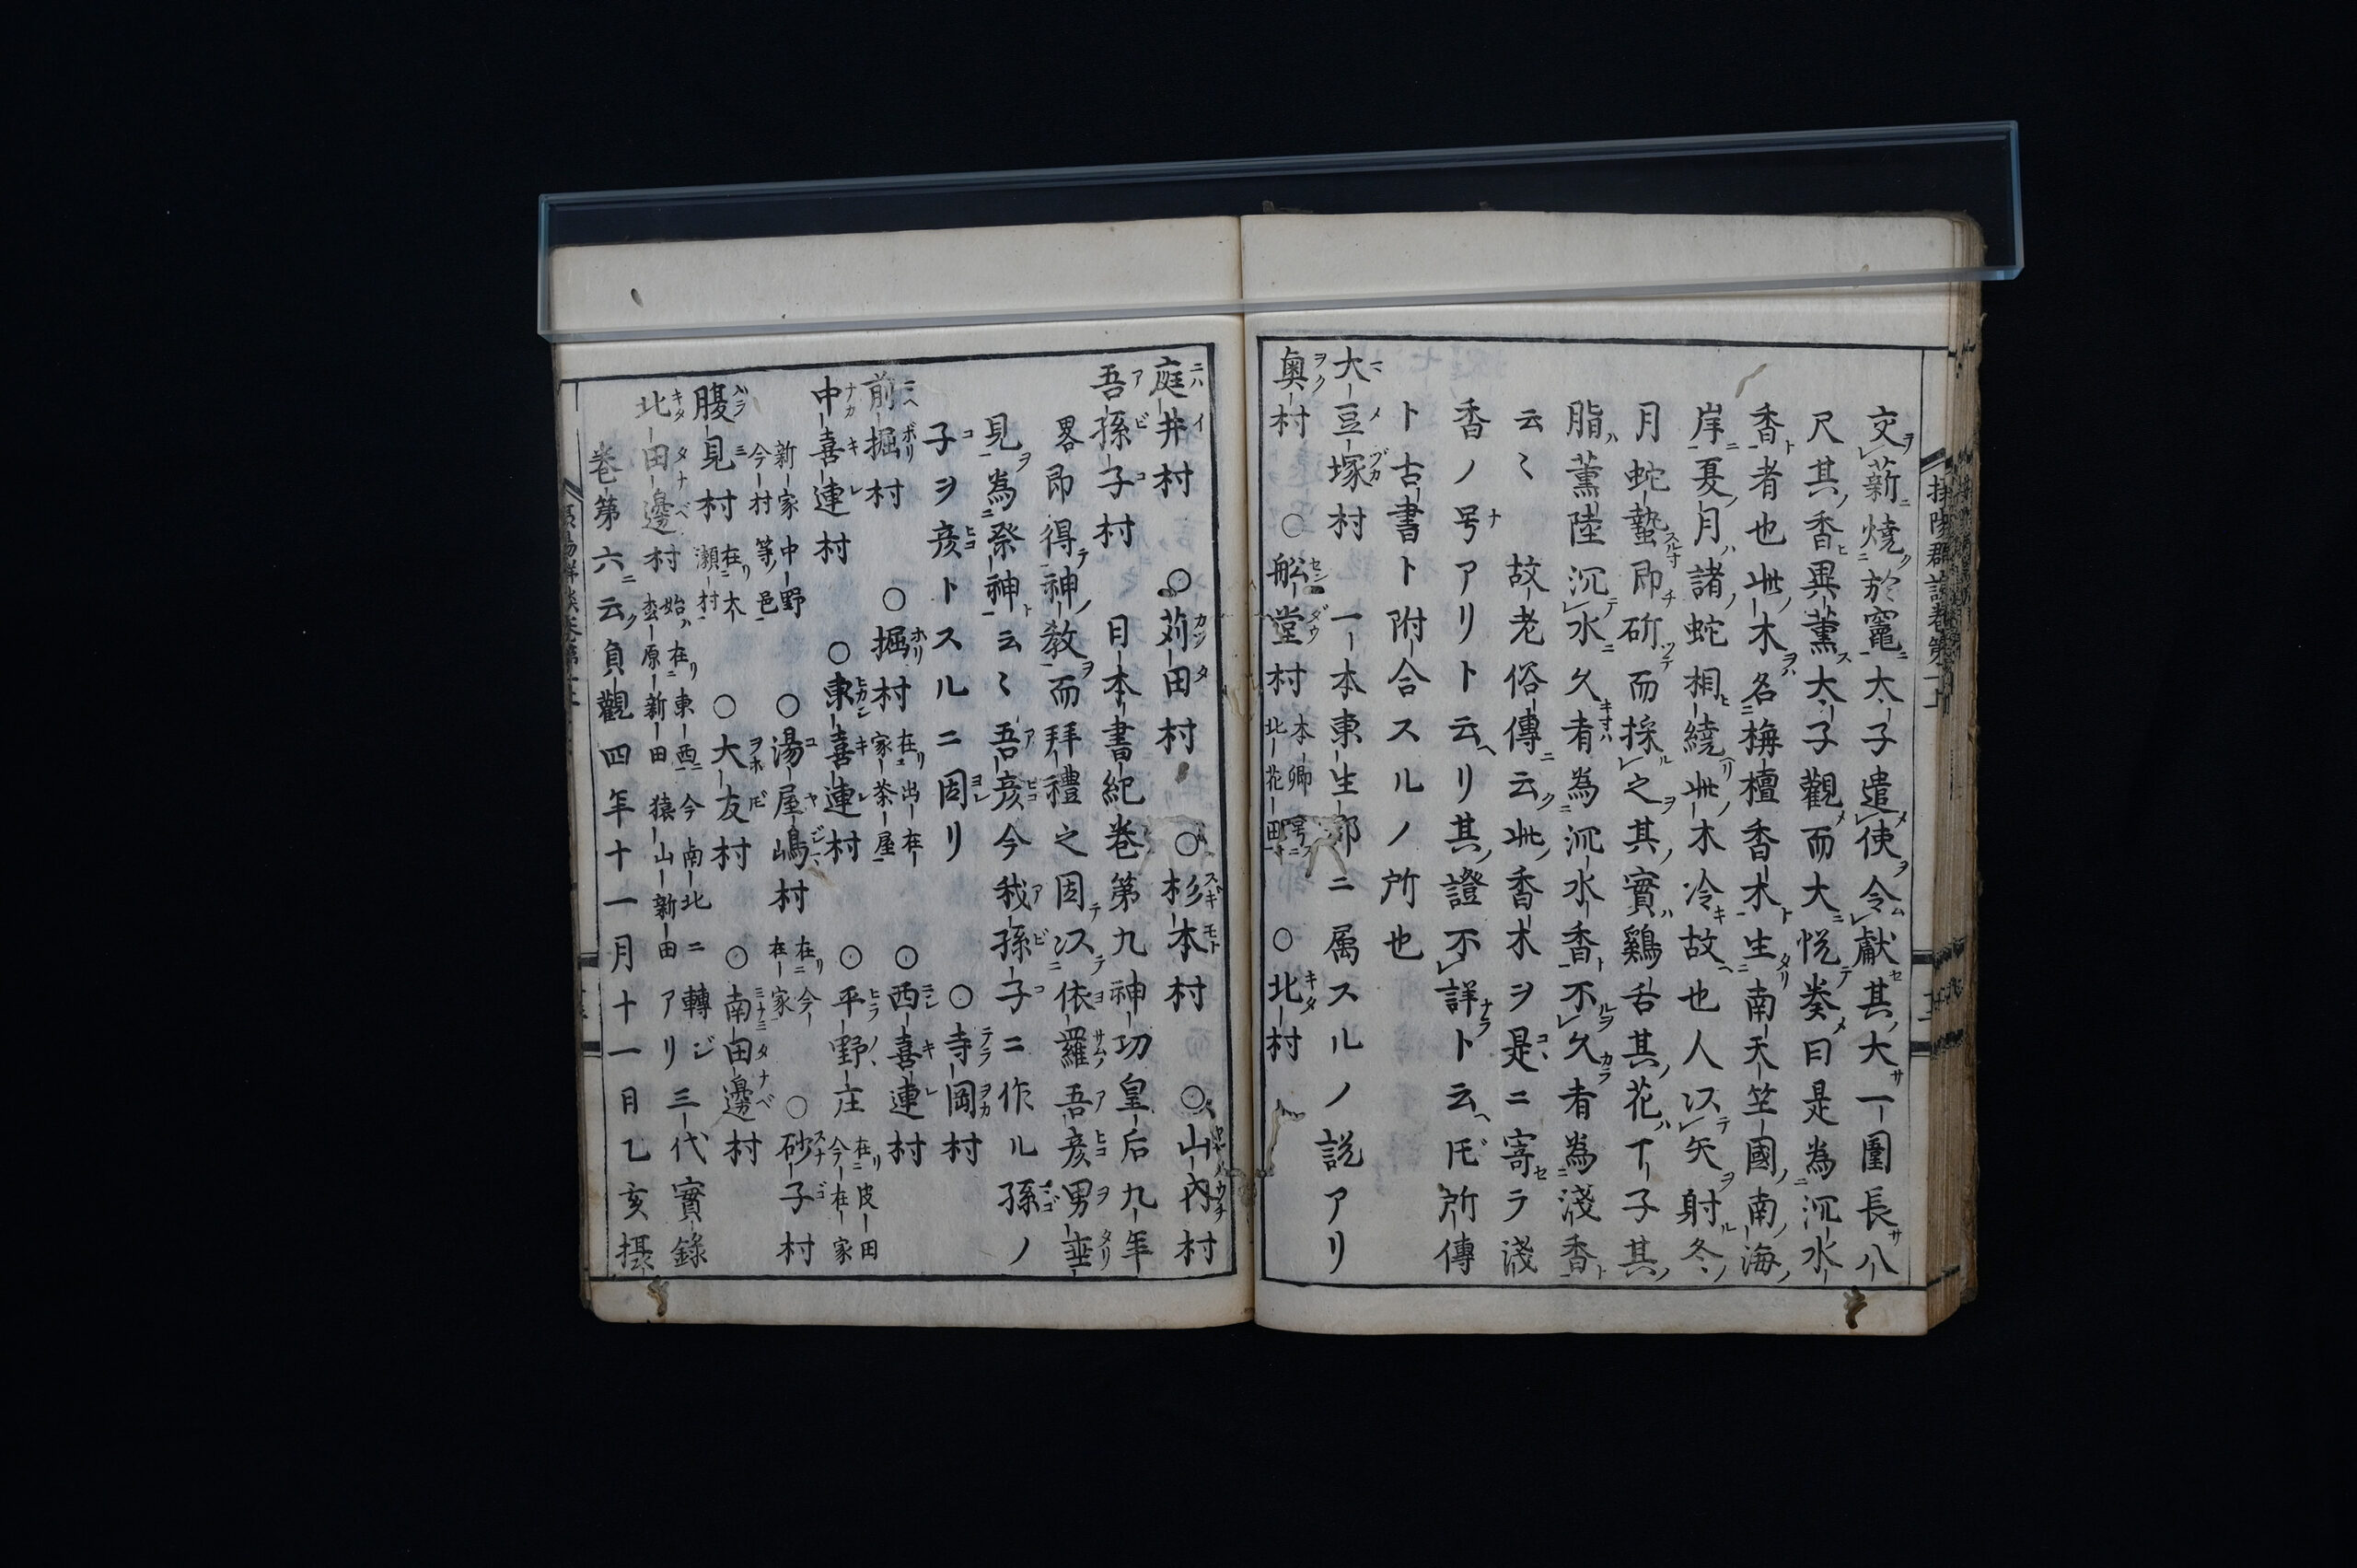 交薪燒於竈太子遣使令獻其大一圍長八
尺其香異薫太子觀而大悦奏曰是為沉水
香者也此木名栴檀香木生南天竺國南海
岸夏月諸蛇相繞此木冷故也人以矢射冬
月蛇蟄即斫而採之其實鷄舌其花丁子其
脂薫陸沉水久者為沉水香不久者為淺香
云〻 故老俗傳云此香木ヲ是ニ寄ラ淺
香ノ号アリト云ヘリ其證不詳ト云ヘ𪜈所傳
ト古書ト附合スルノ所也
大豆塚村 一本東生郡ニ属スルノ説アリ
奥村 ○船堂村 本郷号ニス北花田村 ○北村
庭井村 ○苅田村 ○杉本村 ○山内村
吾孫子村 日本書紀巻第九神功皇后九年
畧即得神教而拜禮之因以依羅吾彦男垂
見為祭神云〻吾彦今我孫子ニ作ル孫ノ
子ヲ彦トスルニ因リ ○寺岡村
前堀村 ○堀村 在出在家茶屋 ○西喜連村
中喜連村 ○東喜連村 ○平野庄 在皮田今在家
新家中野今村等邑 ○湯屋嶋村 在今在家 ○砂子村
腹見村 在木瀬村 ○大友村 ○南田邊村
北田邊村 始在東西今南北ニ轉ジ 桒原新田猿山新田アリ 三代實録
巻第六云貞觀四年十一月十一日乙亥摂